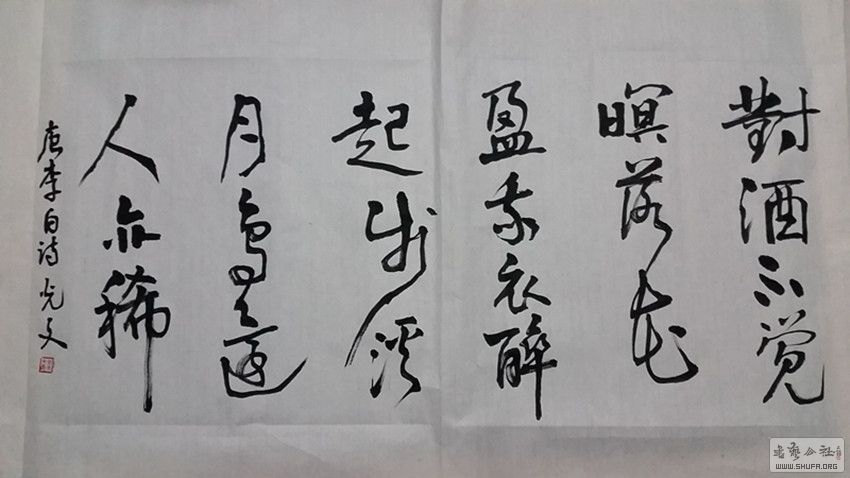 對酒不覺
暝落花
盈我衣醉
起步溪
月鳥還
人亦稀
唐李白诗 光文
書藝公社
WWW.SHUFA.ORG